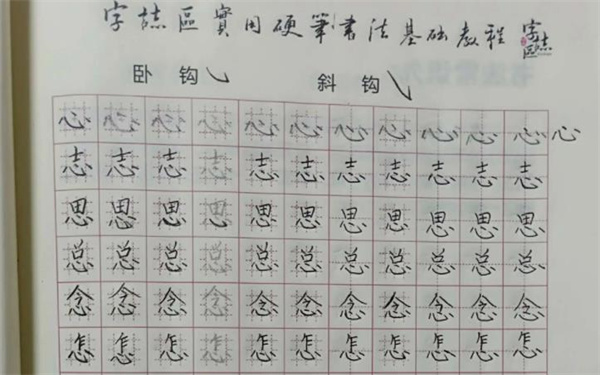 字誌區實用硬筆書法基础教程 字誌區
卧钩 斜钩
心心心心心心心心心心心心
志志志志志志志志志志志
思思思思思思思思思思思
总总总总总总总总总总总
念念念念念念念念念念念
怎怎怎怎怎怎怎怎怎怎怎